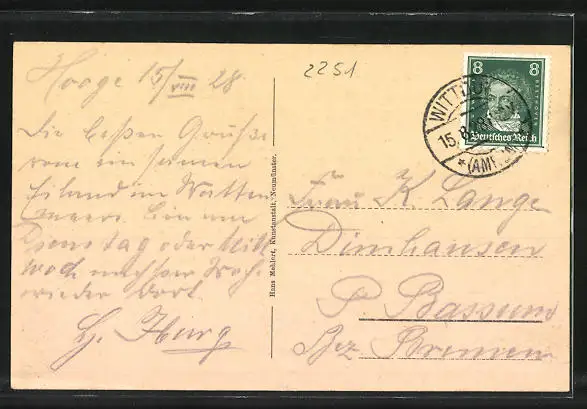 Hooge 15/VIII 28
2251
Die besten Grüße
vom einsamen
Eiland im Watten
meer. Bin am
Dienstag oder Mitt
woch nächster Woche
wieder dort.
H.
Hans Mehlert, Kunstanstalt, Neumünster.
8 8
BEETHOVEN
Deutsches Reich
WITTDÜN
15.8.28
*(AMRUM)
Frau K. Lange
Dimhausen
P. Bassum
Bez. Bremen